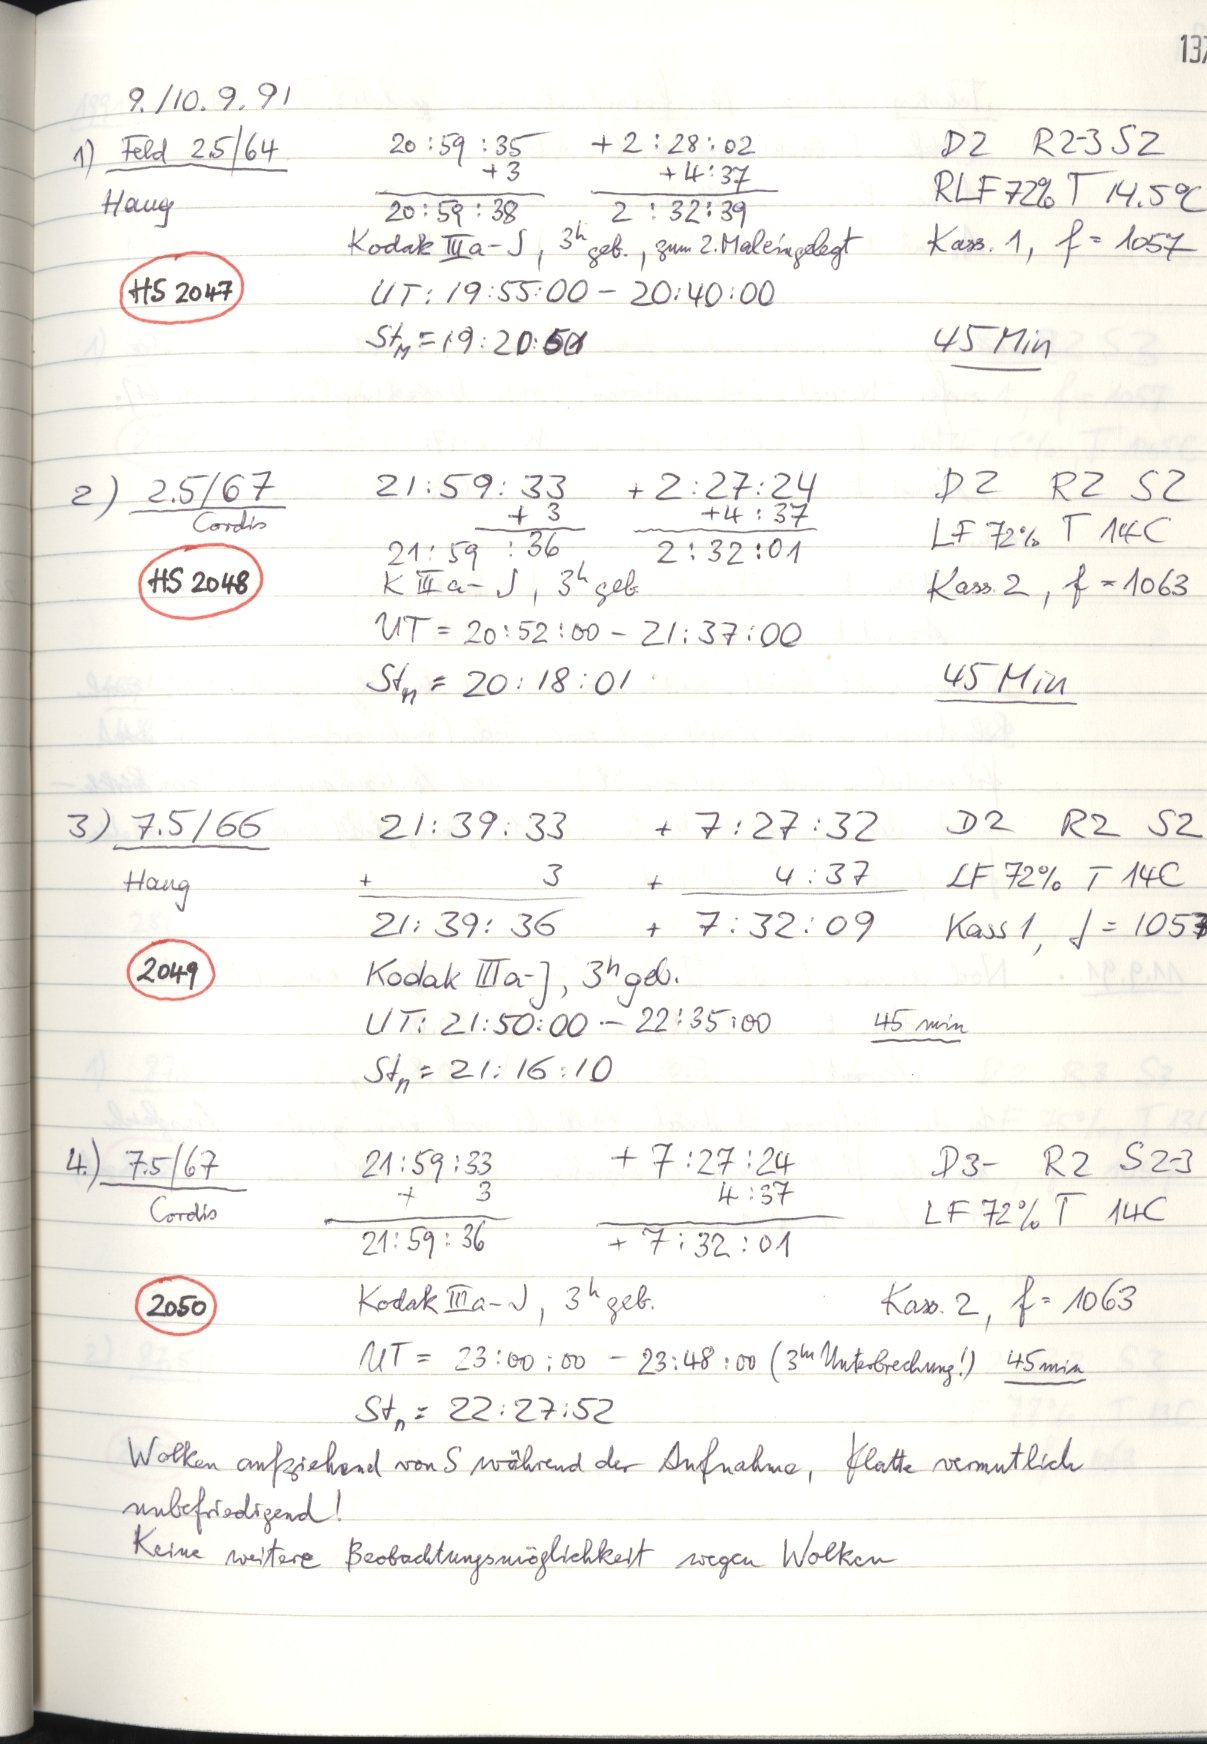 137
9./10.9.91
1) Feld 2.5/64 20:59:35 +2:28:02 D2 R2-3 S2
+3 +4:37
Haug 20:59:38 2:32:39 RLF 72% T 14.5°C
Kodak IIIa-J, 3h geb., zum 2. Mal eingelegt Kass. 1, f = 1057
HS 2047 UT: 19:55:00 - 20:40:00
StM = 19:20: 45 Min
2) 2.5/67 21:59:33 +2:27:24 D2 R2 S2
Cordis +3 +4:37
21:59:36 2:32:01 LF 72% T 14C
HS 2048 K IIIa-J, 3h geb. Kass. 2, f = 1063
UT = 20:52:00 - 21:37:00
Stn = 20:18:01 45 Min
3) 7.5/66 21:39:33 + 7:27:32 D2 R2 S2
Haug + 3 + 4:37 LF 72% T 14C
21:39:36 + 7:32:09 Kass 1, f = 1057
2049 Kodak IIIa-J, 3h geb.
UT: 21:50:00 - 22:35:00 45 min
Stn = 21:16:10
4.) 7.5/67 21:59:33 + 7:27:24 D3- R2 S2-3
+ 3 4:37
Cordis 21:59:36 + 7:32:01 LF 72% T 14C
2050 Kodak IIIa-J, 3h geb. Kass. 2, f = 1063
UT = 23:00:00 - 23:48:00 (3m Unterbrechung!) 45min
Stn = 22:27:52
Wolken aufziehend von S während der Aufnahme, Platte vermutlich
unbefriedigend!
Keine weitere Beobachtungsmöglichkeit wegen Wolken